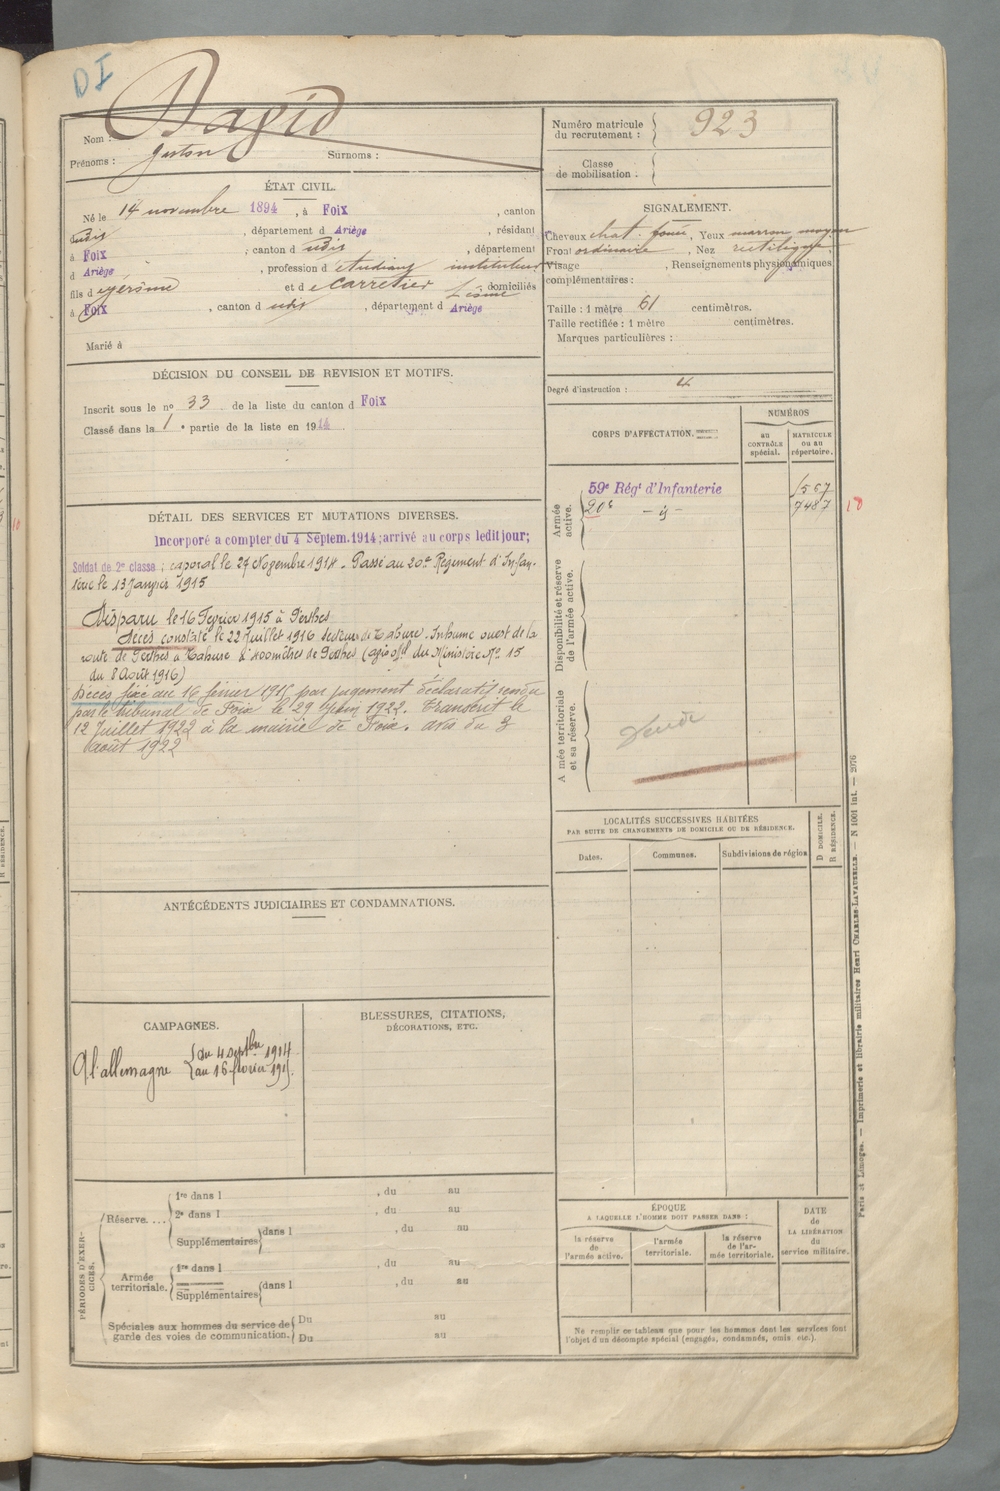 DI
Nom :
Prénoms : Gaston Surnoms :
Numéro matricule du recrutement : 923
Classe de mobilisation :
ÉTAT CIVIL.
Né le 14 novembre 1894, à Foix, canton
dudit, département d Ariège, résidant
à Foix, canton d udit, département
d Ariège, profession d étudiant instituteur
fils d e Jérôme et d e Carretier domiciliés
à Foix, canton d udit, département d Ariège
Marié à
SIGNALEMENT.
Cheveux chat. foncé, Yeux marron moyen
Front ordinaire, Nez rectiligne
Visage , Renseignements physionomiques
complémentaires :
Taille : 1 mètre 61 centimètres.
Taille rectifiée : 1 mètre centimètres.
Marques particulières :
Degré d'instruction :
DÉCISION DU CONSEIL DE REVISION ET MOTIFS.
Inscrit sous le nº 33 de la liste du canton d Foix
Classé dans la 1e partie de la liste en 1914
DÉTAIL DES SERVICES ET MUTATIONS DIVERSES.
Incorporé a compter du 4 Septem. 1914; arrivé au corps ledit jour;
Soldat de 2e classe ; caporal le 27 Novembre 1914. Passé au 20e Régiment d'Infan-
terie le 13 Janvier 1915
Disparu le 16 Février 1915 à Perthes
Décès constaté le 22 Juillet 1916 secteur de Tahure. Inhumé ouest de la
route de Perthes à Tahure à 400 mètres de Perthes (avis off. du Ministère No 15
du 8 Août 1916)
Décès fixé au 16 février 1915 par jugement déclaratif rendu
par le tribunal de Foix le 29 Juin 1922. Transcrit le
12 Juillet 1922 à la mairie de Foix. avis du 3
août 1922
CORPS D'AFFECTATION.
NUMÉROS
au CONTRÔLE spécial.
MATRICULE ou au répertoire.
Armée active.
59e Régt d'Infanterie
20e - id -
7487
Disponibilité et réserve de l'armée active.
Armée territoriale et sa réserve.
LOCALITÉS SUCCESSIVES HABITÉES
PAR SUITE DE CHANGEMENTS DE DOMICILE OU DE RÉSIDENCE.
Dates.
Communes.
Subdivisions de région
D DOMICILE.
R RÉSIDENCE.
ANTÉCÉDENTS JUDICIAIRES ET CONDAMNATIONS.
CAMPAGNES.
BLESSURES, CITATIONS,
DÉCORATIONS, ETC.
C l'allemagne { du 4 septbre 1914
au 16 février 1915
PÉRIODES D'EXERCICES.
Réserve....
1re dans l , du au
2e dans l , du au
Supplémentaires dans l , du au
Armée territoriale.
1re dans l , du au
Supplémentaires dans l , du au
Spéciales aux hommes du service de Du au
garde des voies de communication. Du au
ÉPOQUE
A LAQUELLE L'HOMME DOIT PASSER DANS :
la réserve de l'armée active.
l'armée territoriale.
la réserve de l'armée territoriale.
DATE de LA LIBÉRATION du service militaire.
Ne remplir ce tableau que pour les hommes dont les services font
l'objet d'un décompte spécial (engagés, condamnés, omis etc.).
Paris et Limoges. — Imprimerie et librairie militaires Henri CHARLES-LAVAUZELLE. — N 1001 int. — 2076